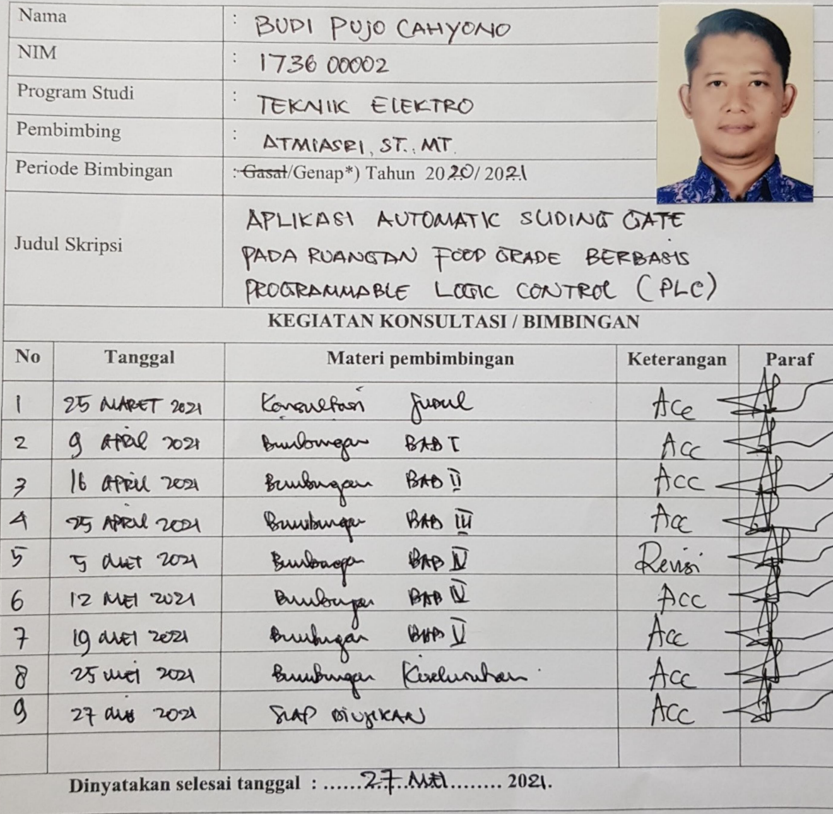 Nama : BUDI PUJO CAHYONO
NIM : 1736 00002
Program Studi : TEKNIK ELEKTRO
Pembimbing : ATMIASRI, ST., MT.
Periode Bimbingan : Gasal/Genap*) Tahun 2020/2021
Judul Skripsi
APLIKASI AUTOMATIC SLIDING GATE
PADA RUANGAN FOOD GRADE BERBASIS
PROGRAMMABLE LOGIC CONTROL (PLC)
KEGIATAN KONSULTASI / BIMBINGAN
No Tanggal Materi pembimbingan Keterangan Paraf
1 25 MARET 2021 Konsultasi Judul Acc
2 9 APRIL 2021 Bimbingan BAB I Acc
3 16 APRIL 2021 Bimbingan BAB II Acc
4 25 APRIL 2021 Bimbingan BAB III Acc
5 5 MEI 2021 Bimbingan BAB IV Revisi
6 12 MEI 2021 Bimbingan BAB IV Acc
7 19 MEI 2021 Bimbingan BAB V Acc
8 25 MEI 2021 Bimbingan Keseluruhan Acc
9 27 MEI 2021 SIAP DIUJIKAN Acc
Dinyatakan selesai tanggal : ......27 MEI......... 2021.